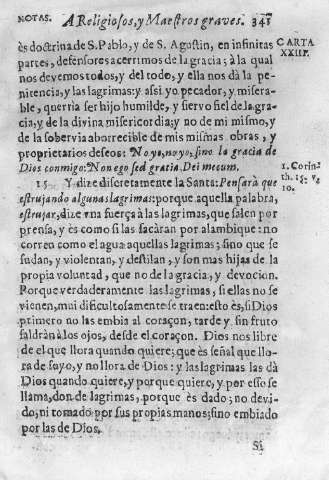 NOTAS. A Religiosos, y Maestros graves. 341
ès doctrina de S. Pablo, y de S. Agustin, en infinitas
partes, defensores acerrimos de la gracia; à la qual
nos devemos todos, y del todo, y ella nos dà la pe-
nitencia, y las lagrimas: y assi yo pecador, y misera-
ble, querria ser hijo humilde, y siervo fiel de la gra-
cia, y de la divina misericordia; y no de mi mismo, y
de la sobervia aborrecible de mis mismas obras, y
proprietarios deseos: No yo, no yo, sino la gracia de
Dios conmigo: Non ego sed gratia Dei mecum.
15 Y dize discretamente la Santa: Pensarà que
estrujando algunas lagrimas: porque aquella palabra,
estrujar, dize vna fuerça à las lagrimas, que salen por
prensa, y ès como si las sacàran por alambique: no
corren como el agua aquellas lagrimas; sino que se
sudan, y violentan, y destilan, y son mas hijas de la
propia voluntad, que no de la gracia, y devocion.
Porque verdaderamente las lagrimas, si ellas no se
vienen, mui dificultosamente se traen: esto ès, si Dios
primero no las embia al coraçon, tarde y sin fruto
saldràn à los ojos, desde el coraçon. Dios nos libre
de el que llora quando quiere; que ès señal que llo-
ra de suyo, y no llora de Dios: y las lagrimas las dà
Dios quando quiere, y porque quiere, y por esso se
llama, don de lagrimas, porque ès dado; no devi-
do, ni tomado por sus propias manos; sino embiado
por las de Dios.
Si
CARTA
XXIII.
1. Corin-
th. 15. v.
10.